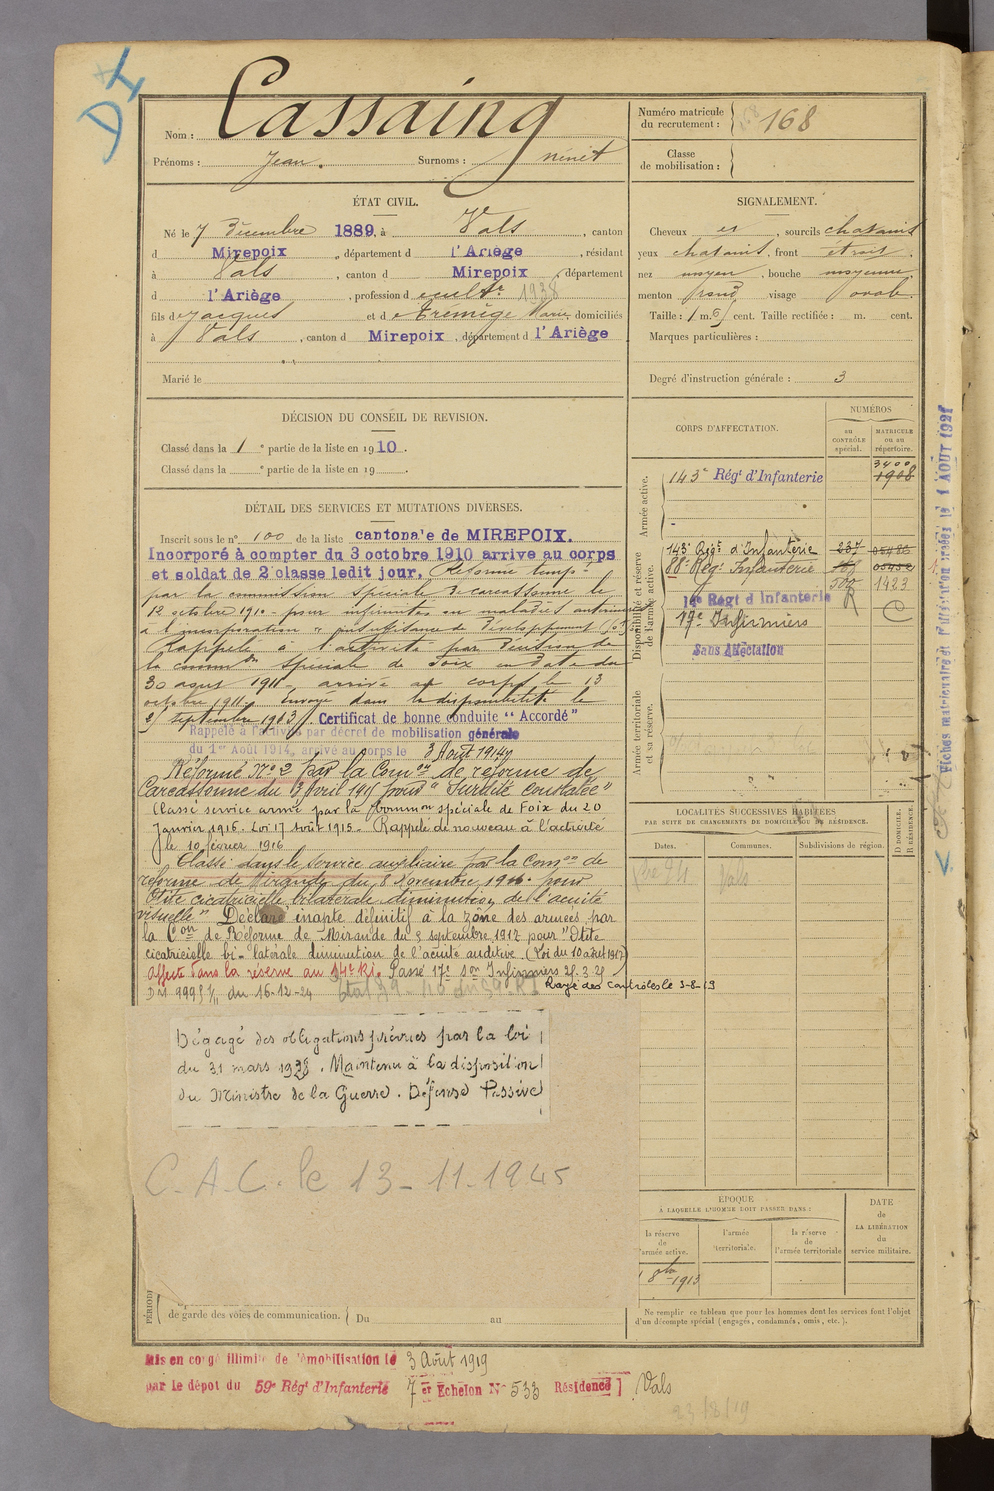 DI
Nom : Cassaing
Prénoms : Jean. Surnoms : ninet
Numéro matricule du recrutement : 168
Classe de mobilisation :
ÉTAT CIVIL.
Né le 7 Décembre 1889, à Vals, canton
d Mirepoix, département d l'Ariège, résidant
à Vals, canton d Mirepoix, département
d l'Ariège, profession d cultr 1938
fils de Jacques et de Trémège Marie, domiciliés
à Vals, canton d Mirepoix, département d l'Ariège
Marié le
SIGNALEMENT.
Cheveux et, sourcils chatains
yeux chatains, front étroit
nez moyen, bouche moyenne
menton rond visage ovale
Taille : 1 m. 61 cent. Taille rectifiée : m. cent.
Marques particulières :
Degré d'instruction générale : 3
DÉCISION DU CONSEIL DE REVISION.
Classé dans la 1e partie de la liste en 1910.
Classé dans la e partie de la liste en 19 .
DÉTAIL DES SERVICES ET MUTATIONS DIVERSES.
Inscrit sous le n° 100 de la liste cantonale de MIREPOIX.
Incorporé à compter du 3 octobre 1910 arrive au corps
et soldat de 2e classe ledit jour. Réformé tempre
par la commission spéciale de Carcassonne le
12 octobre 1910 pour infirmités ou maladies antérieures
à l'incorporation "insuffisance de développement
Rappelé à l'activité par décision de
la common spéciale de Foix en date du
30 août 1911 arrivé au corps le 13
octobre 1911. Envoyé dans la disponibilité le
septembre 1913. Certificat de bonne conduite "Accordé"
Rappelé à l'activité par décret de mobilisation générale
du 1er Août 1914, arrivé au corps le 3 Août 1914
Réformé N° 2 par la Comon de réforme de
Carcassonne du 3 Avril 1915 pour "Surdité constatée"
Classé service armé par la Common spéciale de Foix du 20
Janvier 1916. Loi 17 Août 1915. Rappelé de nouveau à l'activité
le 10 février 1916
Classé dans le service auxiliaire par la Comon de
réforme de Mirande du 8 Novembre 1916 pour
Otite cicatricielle bilatérale diminution de l'acuité
visuelle" Déclaré inapte définitif à la zône des armées par
la Con de Réforme de Mirande du 5 septembre 1917 pour "Otite
cicatricielle bi-latérale diminution de l'acuité auditive. (Loi du 10 août 1917)
Affecté dans la réserve au 14e RI. Passé 17e Son Infirmiers 28.3.21
DM 9995 1/11 du 16-12-24 Rayé des contrôles le 3-8-19
Dégagé des obligations prévues par la loi
du 31 mars 1928. Maintenu à la disposition
du Ministre de la Guerre. Défense Passive
C.A.C. le 13-11-1945
PÉRIODE
de garde des voies de communication. Du au
CORPS D'AFFECTATION.
NUMÉROS
au CONTRÔLE spécial.
MATRICULE ou au répertoire.
Armée active.
143e Régt d'Infanterie 3400 1908
Disponibilité et réserve de l'armée active.
143e Régt d'Infanterie 237 05486
88e Régt Infanterie 05452
1423
14e Régt d'Infanterie R C
17e Infirmiers
Sans Affectation
Armée territoriale et sa réserve.
LOCALITÉS SUCCESSIVES HABITÉES
PAR SUITE DE CHANGEMENTS DE DOMICILE OU DE RÉSIDENCE.
Dates. Communes. Subdivisions de région. D DOMICILE. R RÉSIDENCE.
Vals
ÉPOQUE
À LAQUELLE L'HOMME DOIT PASSER DANS :
la réserve de l'armée active.
l'armée territoriale.
la réserve de l'armée territoriale
DATE de LA LIBÉRATION du service militaire.
1 8bre 1913
Ne remplir ce tableau que pour les hommes dont les services font l'objet
d'un décompte spécial (engagés, condamnés, omis, etc.).
Mis en congé illimité de démobilisation le 3 Août 1919
par le dépot du 59e Régt d'Infanterie 7e Echelon N° 533 Résidence Vals
23/8/19